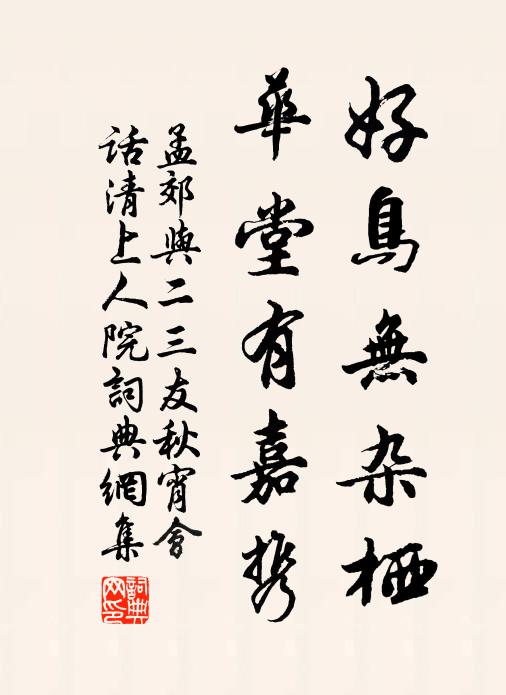 好鳥無杂栖
華堂有嘉携
孟郊與二三友秋宵會
话清上人院詞典網集
詞典网印